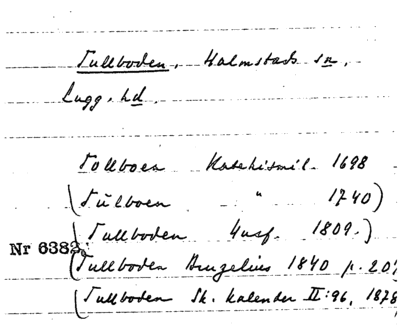 Tullboden. Halmstads sn.
Lugg. hd.
Tollboen Katekismil. 1698
(Tulboen " 1740)
(Tullboden Husf. 1809.)
Nr 6382.
(Tullboden Bruzelius 1840 p. 207
(Tullboden Sk. kalender II:96, 1878